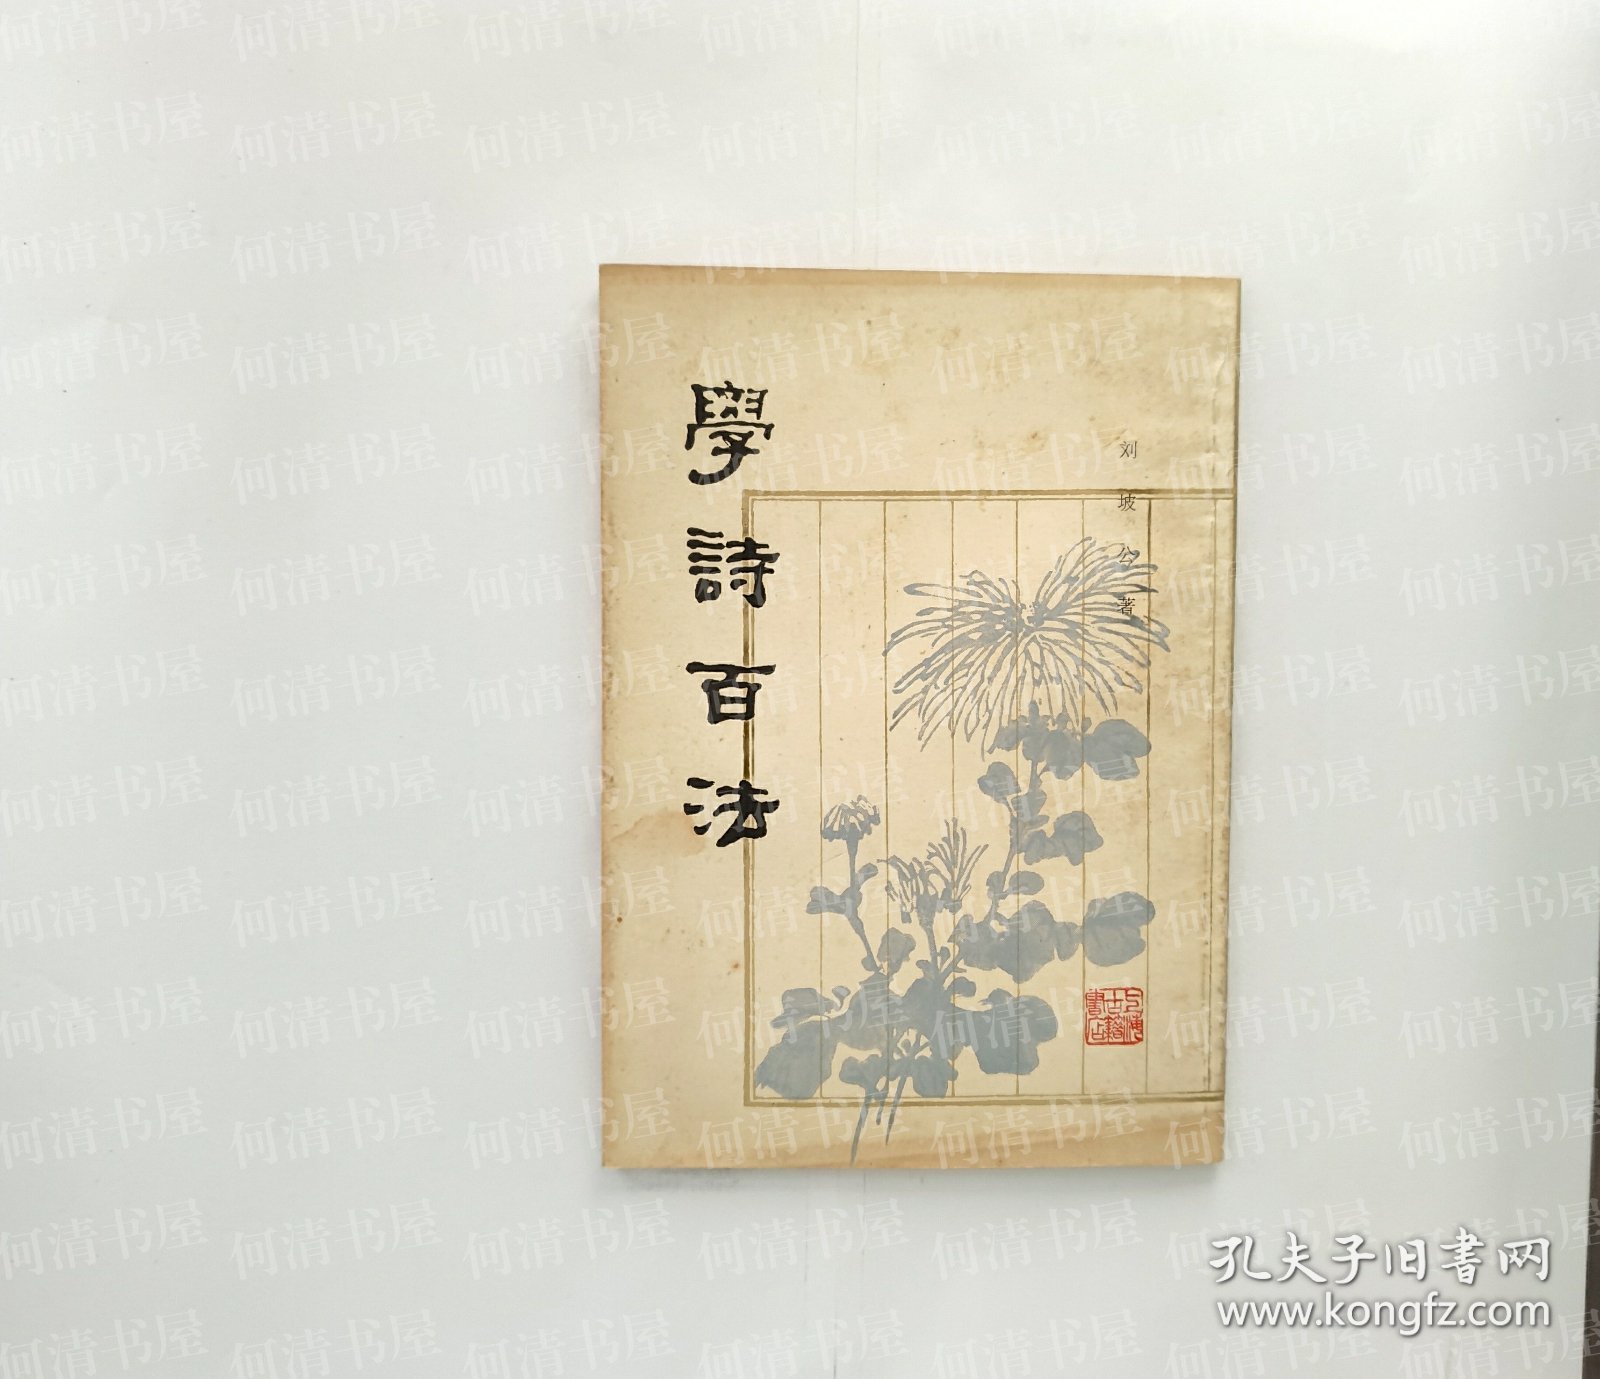 學詩百法
刘坡公著
上海
古籍
書店
孔夫子旧書网
www.kongfz.com
何清书屋